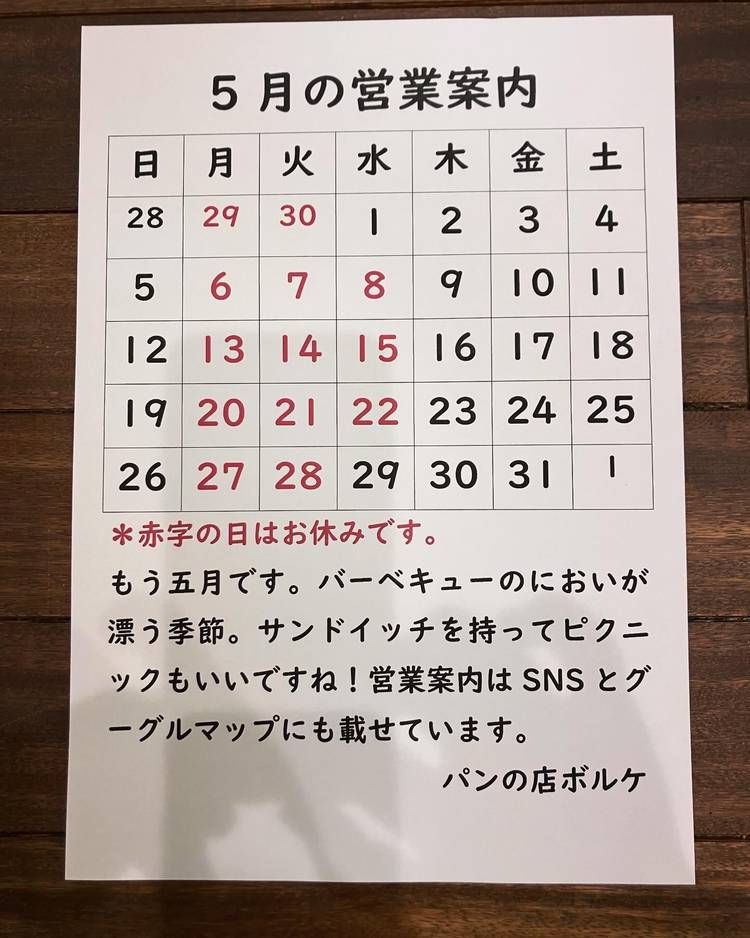 5月の営業案内
日 月 火 水 木 金 土
28 29 30 1 2 3 4
5 6 7 8 9 10 11
12 13 14 15 16 17 18
19 20 21 22 23 24 25
26 27 28 29 30 31 1
＊赤字の日はお休みです。
もう五月です。バーベキューのにおいが
漂う季節。サンドイッチを持ってピクニ
ックもいいですね！営業案内は SNS とグ
ーグルマップにも載せています。
パンの店ボルケ